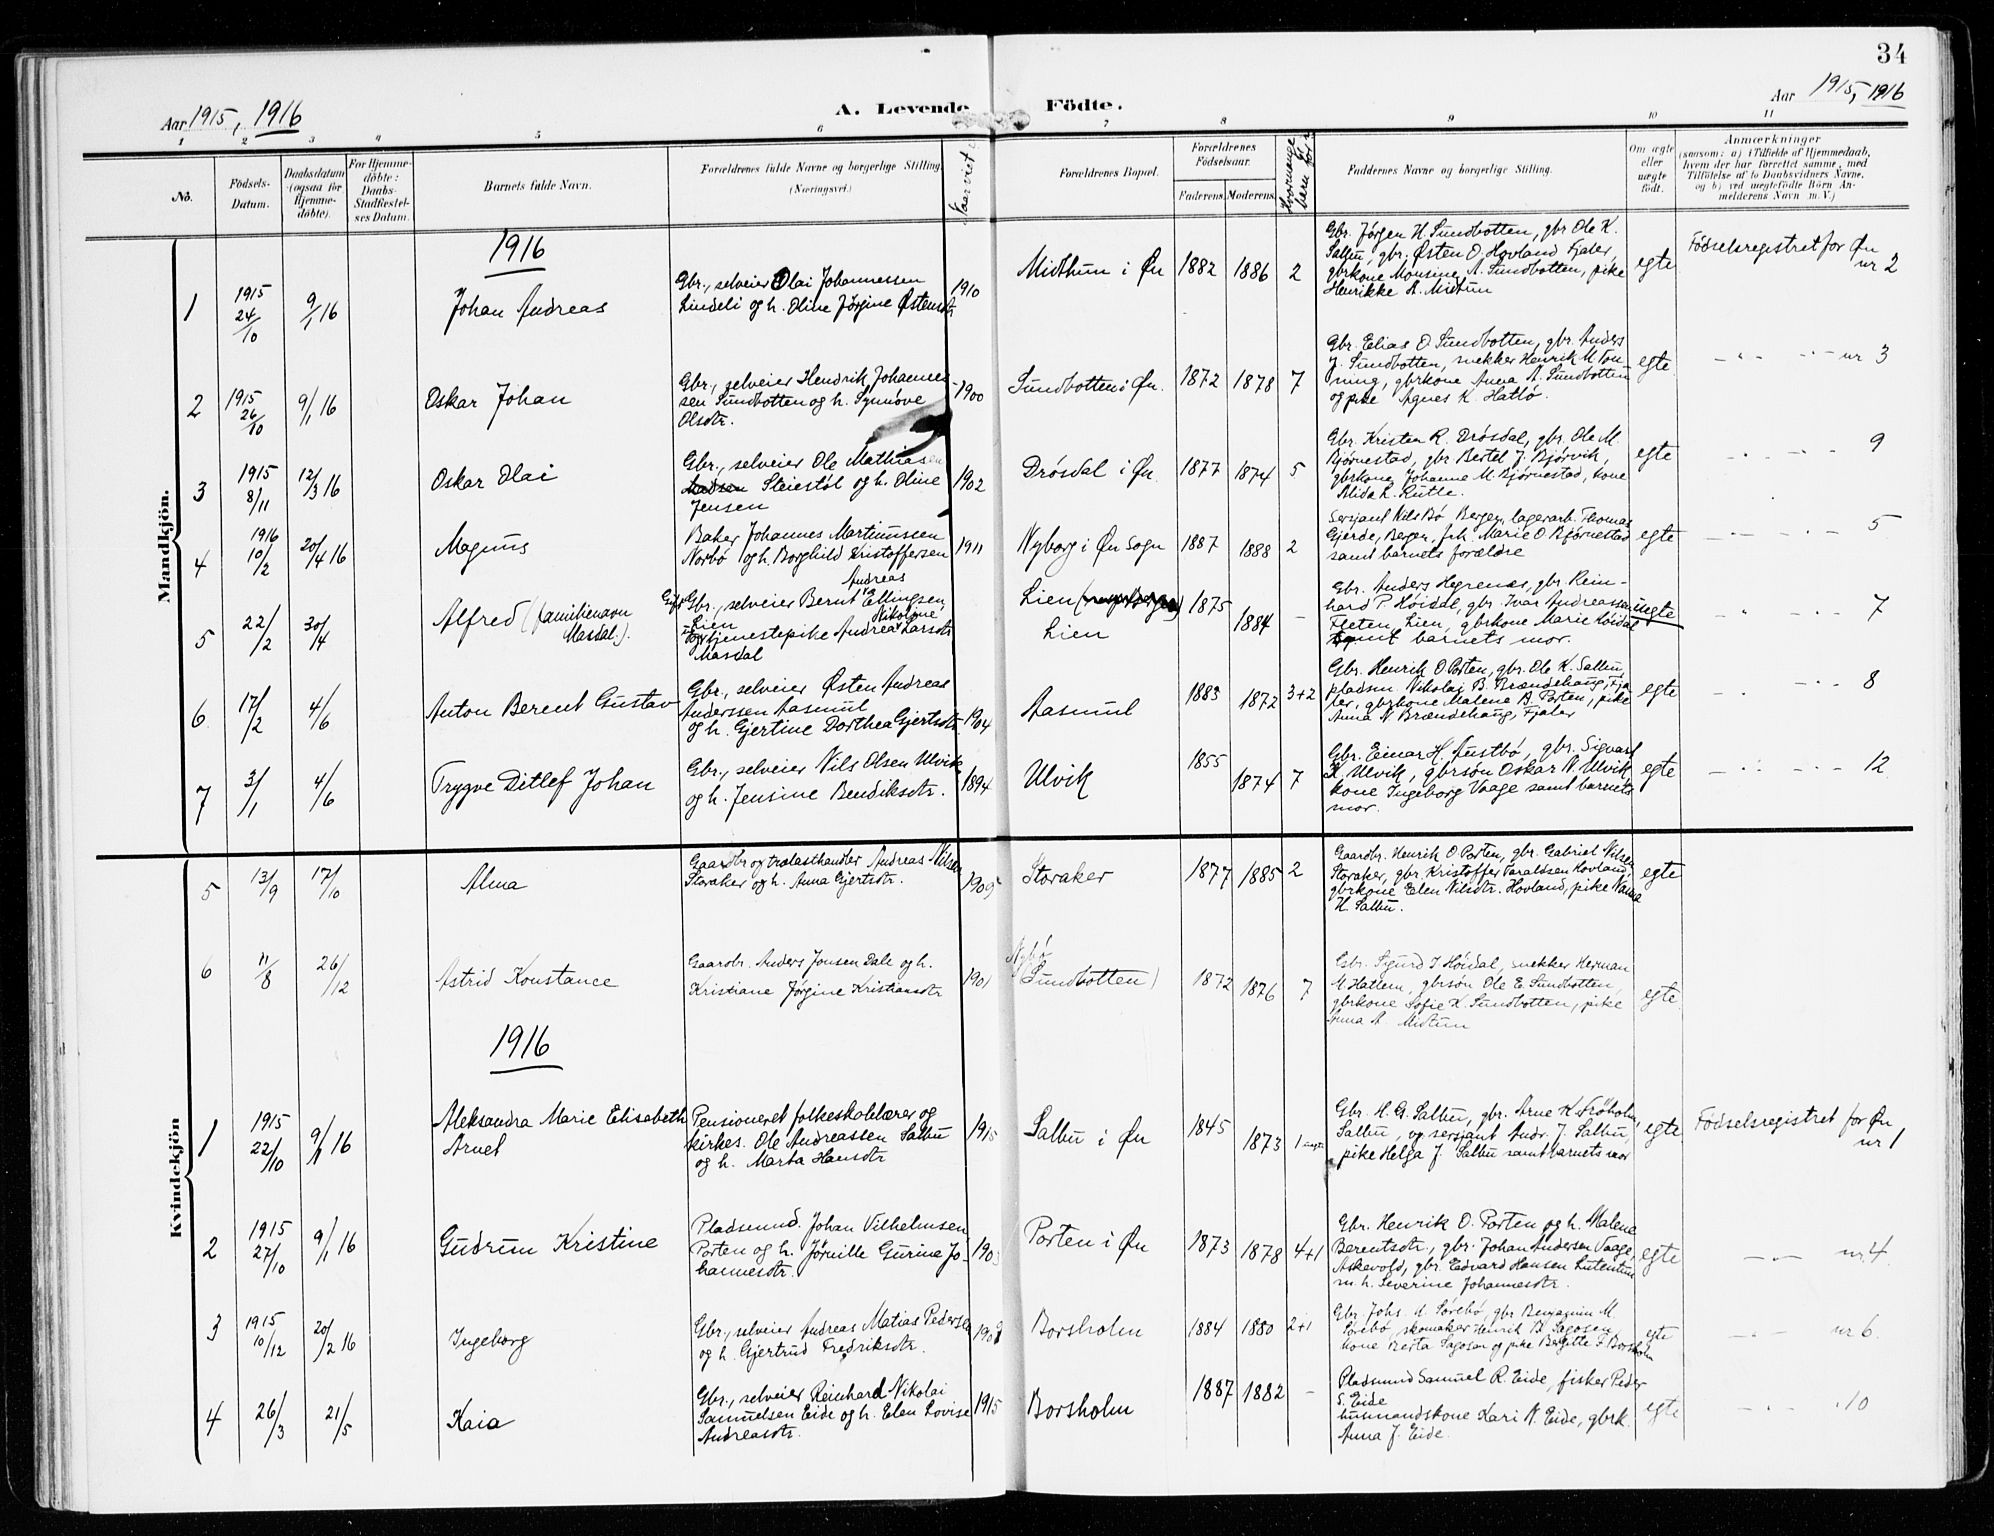 34
Aar 1915, 1916
A. Levende Födte.
Aar 1915, 1916
1 2 3 4 5 6 7 8 9 10 11
No.
Födsels-Datum.
Daabsdatum (ogsaa for Hjemme-döbte).
For Hjemme-döbte: Daabs-Stadfæstel-ses Datum.
Barnets fulde Navn.
Forældrenes fulde Navne og borgerlige Stilling.
(Næringsvei.)
Forældrenes Bopæl.
Forældrenes Födselsaar.
Faderens. Moderens.
Faddernes Navne og borgerlige Stilling.
Om ægte eller uægte födt.
Anmærkninger
(saasom: a) i Tilfælde af Hjemmedaab,
hvem der har forrettet samme, med
Tilföielse af to Daabsvidners Navne,
og b) ved uægtefödte Börn An-
melderens Navn m. V.)
Mandkjön.
1916
1 1915 24/10 9/1 16 Johan Andreas
Gbr., selveier Olai Johannessen
Lindeli og h. Oline Jørgine Østensdtr
1910 Midthun i Øn 1882 1886 2
Gbr. Jørgen H. Sundbotten, gbr Ole K.
Salbu, gbr. Østen O. Hovland Fjaler,
gbrkone Monsine A. Sundbotten, pike
Henrikke A. Midtun
egte
Födselsregistret for Øn
nr 2
2 1915 26/10 9/1 16 Oskar Johan
Gbr., selveier Hendrik Johannes-
sen Sundbotten og h. Synnøve
Olsdtr.
1900 Sundbotten i Øn. 1872 1878 7
Gbr. Elias O Sundbotten, gbr. Anders
J. Sundbotten, snekker Henrik M Ton
ning, gbrkone Anna A. Sundbotten
og pike Agnes K. Hatlø.
egte nr 3
3 1915 8/11 12/3 16 Oskar Olai
Gbr., selveier Ole Mathiasen
Steiestøl og h. Oline
Jensen
1902 Drösdal i Øn 1877 1874 5
Gbr. Kristen R. Drösdal, gbr. Ole M.
Bjørnestad, gbr Bertel J. Bjørvik,
gbrkone Johanne M. Bjørnestad, kone
Alida L. Rutle.
egte 9
4 1916 10/2 20/4 16 Magnus
Baker Johannes Martinussen
Norbø og h. Borghild Kristoffersen
1911 Nyborg i Øn Sogn 1887 1888 2
Sersjant Nils Bø Bergen, lagerarb. Thomas
Gjerde, Bergen, frk. Marie O Bjørnestad
samt barnets forældre
egte 5
5 22/2 30/4 Alfred (familienavn
Masdal).
Gift Gbr., selveier Bernt Andreas Ellingsen,
Lien
og tjenestepike Andrea Nikoline Larsdtr
Masdal
Lien
Lien 1875 1884 -
Gbr. Anders Hegrenæs, gbr. Rein-
hard P. Höidal, gbr. Ivar Andreassen
Fleten, Lien, gbrkone Marie Höidal
samt barnets mor.
uegte 7
6 17/2 4/6 Anton Berent Gustav
Gbr., selveier Østen Andreas
Anderssen Aasmul
og h. Gjertine Dorthea Gjertsdtr
1904 Aasmul 1883 1872 3+2
Gbr. Henrik O Porten, gbr. Ole K. Salbu,
pladsm. Nikolai B. Brændehaug, Fja-
ler, gbrkone Malene B. Porten, pike
Anna N Brændehaug, Fjaler
egte 8
7 3/1 4/6 Trygve Ditlef Johan
Gbr., selveier Nils Olsen Ulvik
og h. Jensine Bendiksdtr.
1894 Ulvik 1855 1874 7
Gbr. Einar H. Austbø, gbr. Sigvart
K. Ulvik, gbrsøn Oskar N. Ulvik,
kone Ingeborg Vaage samt barnets
mor.
egte 12
Kvindekjön
5 13/9 17/10 Alma
Gaardbr og trælasthandler Andreas Nilsen
Storaker og h. Anna Gjertsdtr.
1905 Storaker 1877 1885 2
Gaardbr. Henrik O Porten, gbr. Gabriel Nilsen
Storaker, gbr. Kristoffer Taraldsen Hovland,
gbrkone Elen Nilsdtr. Hovland, pike Nanna
H. Salbu.
egte
6 11/8 26/12 Astrid Konstance
Gaardbr. Anders Jonsen Dale og h.
Kristiane Jørgine Kristiansdtr
1901 Nybö
(Sundbotten) 1872 1876 7
Gbr. Sigurd I Höidal, snekker Herman
M Hatlem, gbrsøn Ole E. Sundbotten,
gbrkone Sofie K. Sundbotten, pike
Anna A. Midtun
egte
1916
1 1915 22/10 9/1 16 Aleksandra Marie Elisabeth
Arnet
Pensioneret folkeskolelærer og
kirkes. Ole Andreassen Salbu
og h. Marta Hansdtr
1915 Salbu i Øn 1845 1873 1
Gbr. H. G. Salbu, gbr. Arne K. Fröholm,
Salbu, og sersjant Andr. J. Salbu,
pike Helga J. Salbu samt barnets mor
egte
Födselsregistret for Øn
nr 1
2 1915 27/10 9/1 16 Gudrun Kristine
Pladsmd. Johan Vilhelmsen
Porten og h. Jørnille Gurine Jo-
hannesdtr.
1903 Porten i Øn 1873 1878 4+1
Gbr. Henrik O. Porten og h. Malene
Berentsdtr., gbr. Johan Andersen Vaage,
Askevold, gbr. Edvard Hansen Lutentun
m. h. Severine Johannesdtr.
egte nr. 4
3 1915 10/12 20/2 16 Ingeborg
Gbr., selveier Andreas Matias Pedersen
og h. Gjertrud Fredriksdtr.
Borsholm 1884 1880 2+1
Gbr. Johs. M Sörebö, gbr Benjamin M
Sörebö, skomaker Henrik B. Sagosen
kone Berta Sagosen og pike Bergitte F Borsholm
egte nr 6.
4 26/3 21/5 Kaia
Gbr., selveier Reinhard Nikolai
Samuelsen Eide og h. Elen Lovise
Andreasdtr.
1915 Borsholm 1887 1882 -
Pladsmand Samuel R. Eide, fisker Peder
S. Eide
husmandskone Kari N. Eide, gbrk.
Anna J. Eide.
egte 10